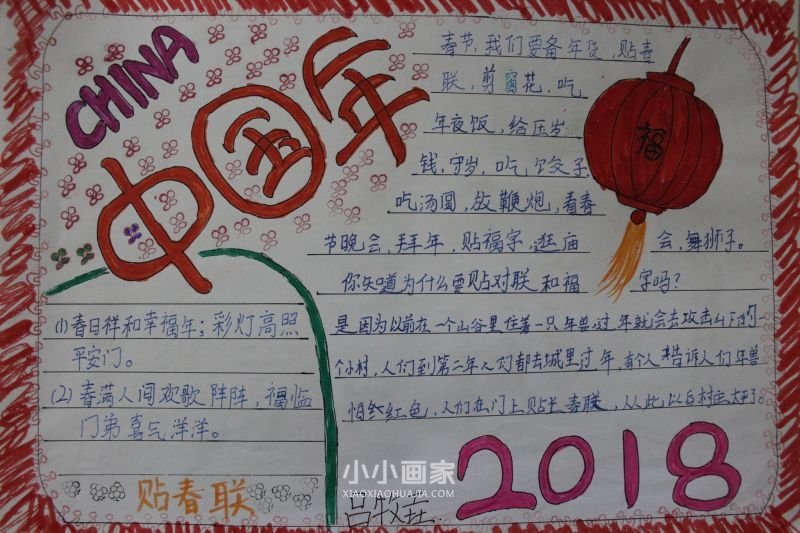 CHINA
中国年
春节,我们要备年货,贴春
联,剪窗花,吃
年夜饭,给压岁
钱,守岁,吃饺子
吃汤圆,放鞭炮,看春
节晚会,拜年,贴福字,逛庙会,舞狮子。
你知道为什么要贴对联和福字吗?
是因为以前在一个山谷里住着一只年兽,过年就会去攻击山下的
个小村,人们到第二年人们都去城里过年,有个人告诉人们年兽
怕红色,人们在门上贴上春联,从此以后村庄太平了。
福
(1)春日祥和幸福年;彩灯高照
平安门。
(2)春满人间欢歌阵阵,福临
门弟喜气洋洋。
贴春联
2018
小小画家
XIAOXIAOHUAJIA.COM
吕牧